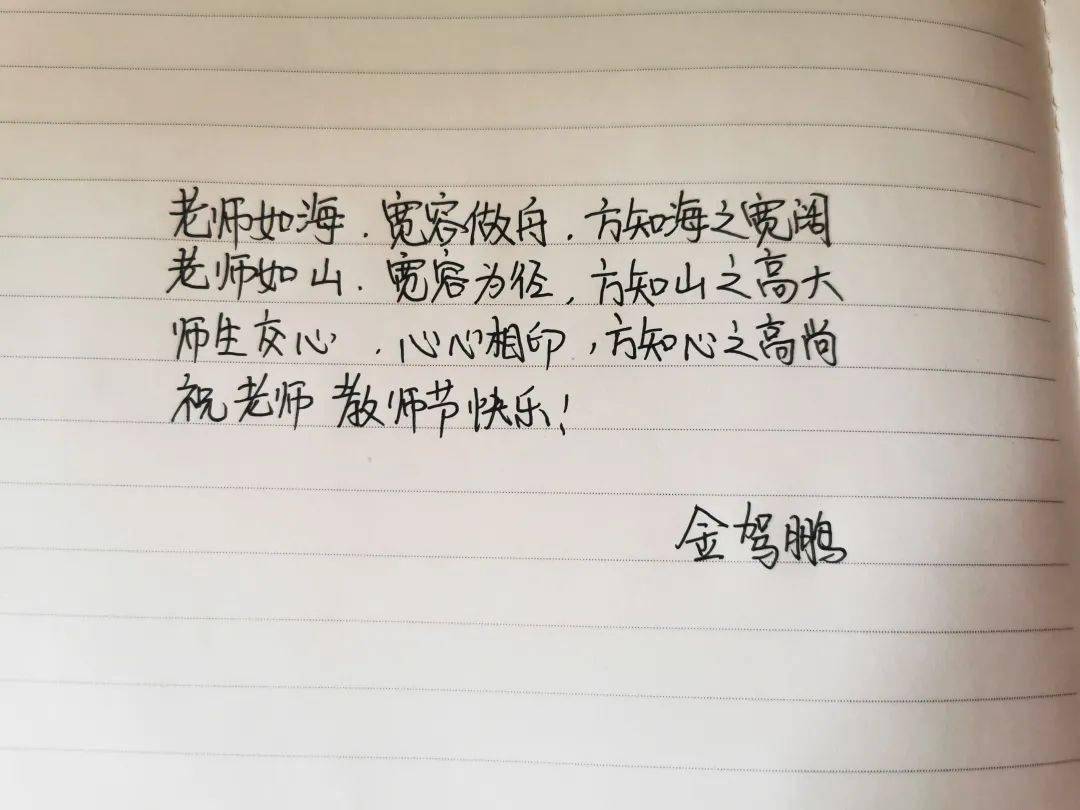 老师如海.宽容做舟.方知海之宽阔
老师如山.宽容为径,方知山之高大
师生交心,心心相印,方知心之高尚
祝老师 教师节快乐!
金驾鹏